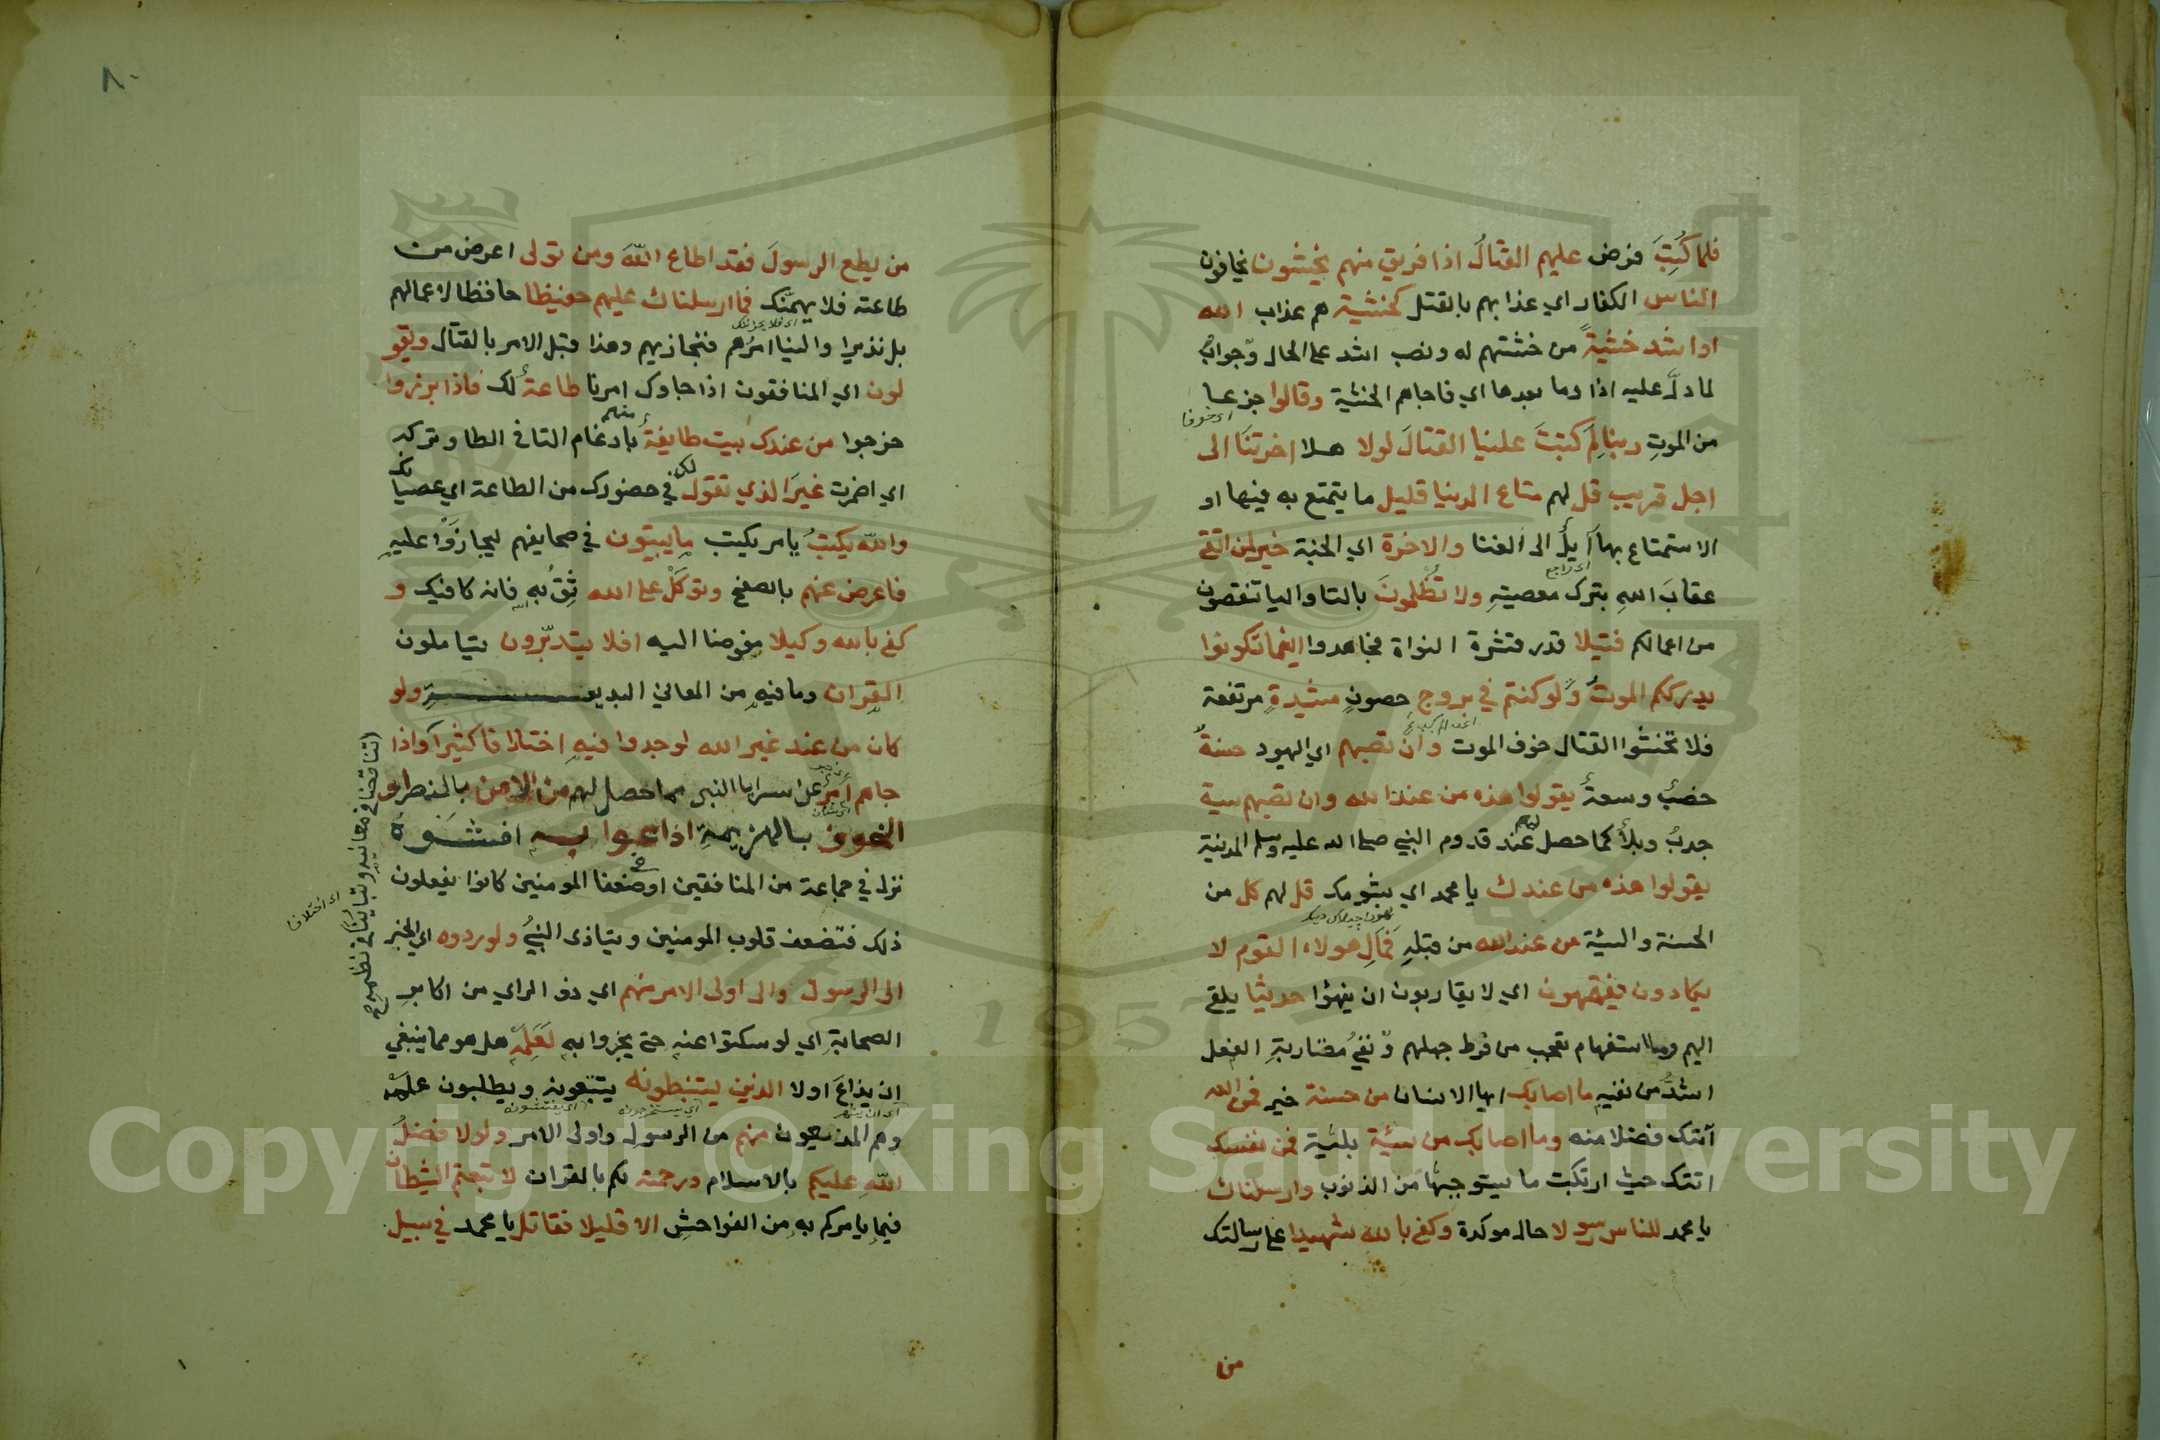 فلما كُتِبَ فرض عليهم القتالُ اذا فريق منهم يخشون يخافون
الناس الكفار اي عذابهم بالقتل كخشية هم عذاب الله
او اشد خشيةً من خشيتهم له ونصب اشد على الحال وجوابُ
لما دلّ عليه اذا وما بعدها اي فاجاهم الخشية وقالوا جزعا
اي خوفا
من الموتِ ربنا لِمَ كتبتَ علينا القتالَ لولا هلا اخرتنَا الى
اجل قريب قل لهم متاع الدنيا قليل ما يتمتع به فيها او
الاستمتاع بها آيلٌ الى الفنا والاخرة اي الجنة خير لمن اتقى
اي راجع
عقابَ اللهِ بترك معصيتهِ ولا تُظلمونَ بالتا واليا تنقصون
من اعمالكم فتيلا قدر قشرة النواة فجاهدوا اينما تكونوا
يدرككم الموتُ ولو كنتم في بروجٍ حصونٍ مشيدةٍ مرتفعة
فلا تخشوا القتال خوف الموت وان تصبهم اي اليهود حسنةٌ
خصبٌ وسعةٌ يقولوا هذه من عند الله وان تصبهم سية
جدبٌ وبلاٌ كما حصل لهم عند قدوم النبي صلى الله عليه وسلم المدينة
يقولوا هذه من عندك يا محمد اي بشومك قل لهم كل من
الحسنة والسيئة من عند الله من قبلهِ فمالِ هولاء القوم لا
يكادون يفقهون اي لا يقاربون ان يفهموا حديثا يلقى
اليهم وما استفهام تعجب من فرط جهلهم ونفيُ مقاربةِ الفعل
اشدُّ من نفيهِ ما اصابك ايها الانسان من حسنة خير فمن الله
اتتك فضلا منه وما اصابك من سيئة بلية فمن نفسك
اتتك حيث ارتكبت ما يستوجبها من الذنوب وارسلناك
يا محمد للناس رسولا حال موكدة وكفى بالله شهيدا على رسالتك
من
٨٠
من يطع الرسولَ فقد اطاع اللهَ ومن تولى اعرض من
طاعته فلا يهمّنك فما ارسلناك عليهم حفيظا حافظا لاعمالهم
اي فلا يحزنك
بل نذيرا والينا امرُهم فنجازيهم وهذا قبل الامر بالقتال ويقو
لون اي المنافقون اذا جاوك امرنا طاعةٌ لك فاذا برزوا
خرجوا من عندك بيت طايفةٌ منهم بادغام التا في الطا وتركه
اي اضمرت غيرَ الذي تقول لك في حضورك من الطاعة اي عصيانك
والله يكتبُ يامر بكتب ما يبيتون في صحايفهم ليجازوا عليهِ
فاعرض عنهم بالصفح وتوكّلْ على الله ثِقْ بهِ فانه كافيك و
كفى بالله وكيلا مفوضا اليه افلا يتدبّرون يتاملون
القران وما فيهِ من المعاني البديعة ولو
كان من عند غير الله لوجدوا فيهِ اختلافا كثيرا واذا
تناقضا في معانيهِ وتباينا في نظمهِ صح
اي اختلافا
جاهم امرٌ عن سرايا النبي مما حصل لهم من الامن بالنصر او
الخوف بالهزيمةِ اذاعوا به افشَوهُ
نزل في جماعة من المنافقين او في ضعفا المومنين كانوا يفعلون
ذلك فتضعف قلوب المومنين ويتاذى النبيُ ولو ردوه اي الخبر
الى الرسول والى اولى الامر منهم اي ذو الراي من اكابرِ
الصحابةِ اي لو سكتوا عنه حتى يخبروا بهِ لعَلِمَه هل هو مما ينبغي
ان يذاعَ اولا الذين يستنبطونه يتتبعونه ويطلبون علمَه
اي يستخرجونه اي يفتشونه
وهم المذيعون منهم من الرسولِ واولى الامر ولولا فضلُ
اللهِ عليكم بالاسلام ورحمته لكم بالقران لاتبعتم الشيطان
فيما يامركم بهِ من الفواحش الا قليلا فقاتل يا محمد في سبيل
Copyright © King Saud University
1957